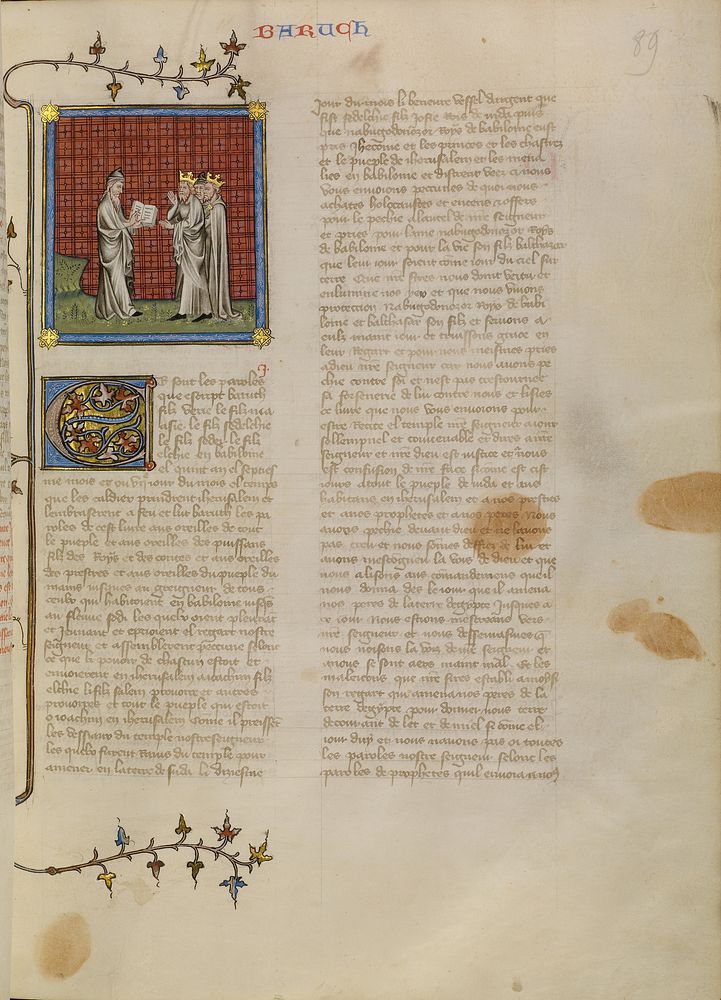 BARUCH
89
J.
E sont les paroles
que escript baruch
filz
asie le filz sedechie
le filz sedei le filz
elchie en babiloine
el quint an el septief
me mois et ou vij jour du mois el temps
que les caldiex prindrent iherusalem et
lembraserent a feu et lut baruth les pa
roles de cest livre aus oreilles de tout
le pueple et aus oreilles des puissans
filz des Roys et des contes et aus oreilles
des prestres et aus oreilles du pueple du
mains jusques au greigneur de tous
ceulx qui habitoient en babiloine jusqs
au fleuve sodi les quelx oient pleurant
et jeunant et prioient el regart nostre
seigneur et assemblerent peccune selonc
ce que le pouoir de chascun estoit et
envoierent en iherusalem a joachin filz
elchie le filz salem provoire et autres
provoires et tout le pueple qui estoit
o joachin en iherusalem come il preissent
les vessiaux du temple nostre seigneur
les quelx furent Ravis du temple pour
amener en la terre de juda le disiesme
jour du mois li vessel dargent que
fist sedechie filz josie Roys de juda puis
que nabugodonozor Roys de babiloine eust
pris et les princes et les
et le pueple de iherusalem et les mena
lies en babiloine et distrent veez ci nous
vous envoions peccunes de quoi vous
achates holocaustes et encens et offres
pour le pechie a lautel de nre seigneur
et pries pour lame nabugodonozor Roys
de babiloine et pour la vie son filz balthazar
que leur jour soient come jour du ciel sur
terre Que nre sires nous doint vertu et
enlumine nos et que nous vivons
protection Nabugodonozor Roys de babi
loine et balthasar son filz et servons a
eulz maint jour et truissons grace en
leur Regart et pour nous meismes pries
a dieu nre seigneur car nous avons pe
chie contre soi et nest pas trestournee
sa forsenerie de lui contre nous et lisies
ce livre que nous vous envoions pour
estre Recite el temple nre seigneur a jour
sollempnel et convenable et dires a nre
seigneur et nre dieu est justice et nous
est confusion de nre face sicome est cist
jours a tout le pueple de juda et aus
habitans en iherusalem et a nos prestres
et anos prophetes et anos peres Nous
avons pechie devant dieu et ne lavons
pas creu et nous somes de lui et
avons mescogneu la vois de dieu et que
nous alissons aus comandemens que il
nous donna des le jour que il amena
nos peres de la terre degypte jusques a
ce jour Nous estions mescreans vers
nre seigneur et nous q
nous noisons la voiz de nre seigneur et
a nous se sont aers maint mal et les
maleicons que nre sires establi a moysi
son sergant qui amena nos peres de la
terre degypte pour donner nous terre
decourant de let et de miel sicome el
jour duy et nous navons pas oi toutes
les paroles nostre seigneur selonc les
paroles de prophetes quil envoia a nos